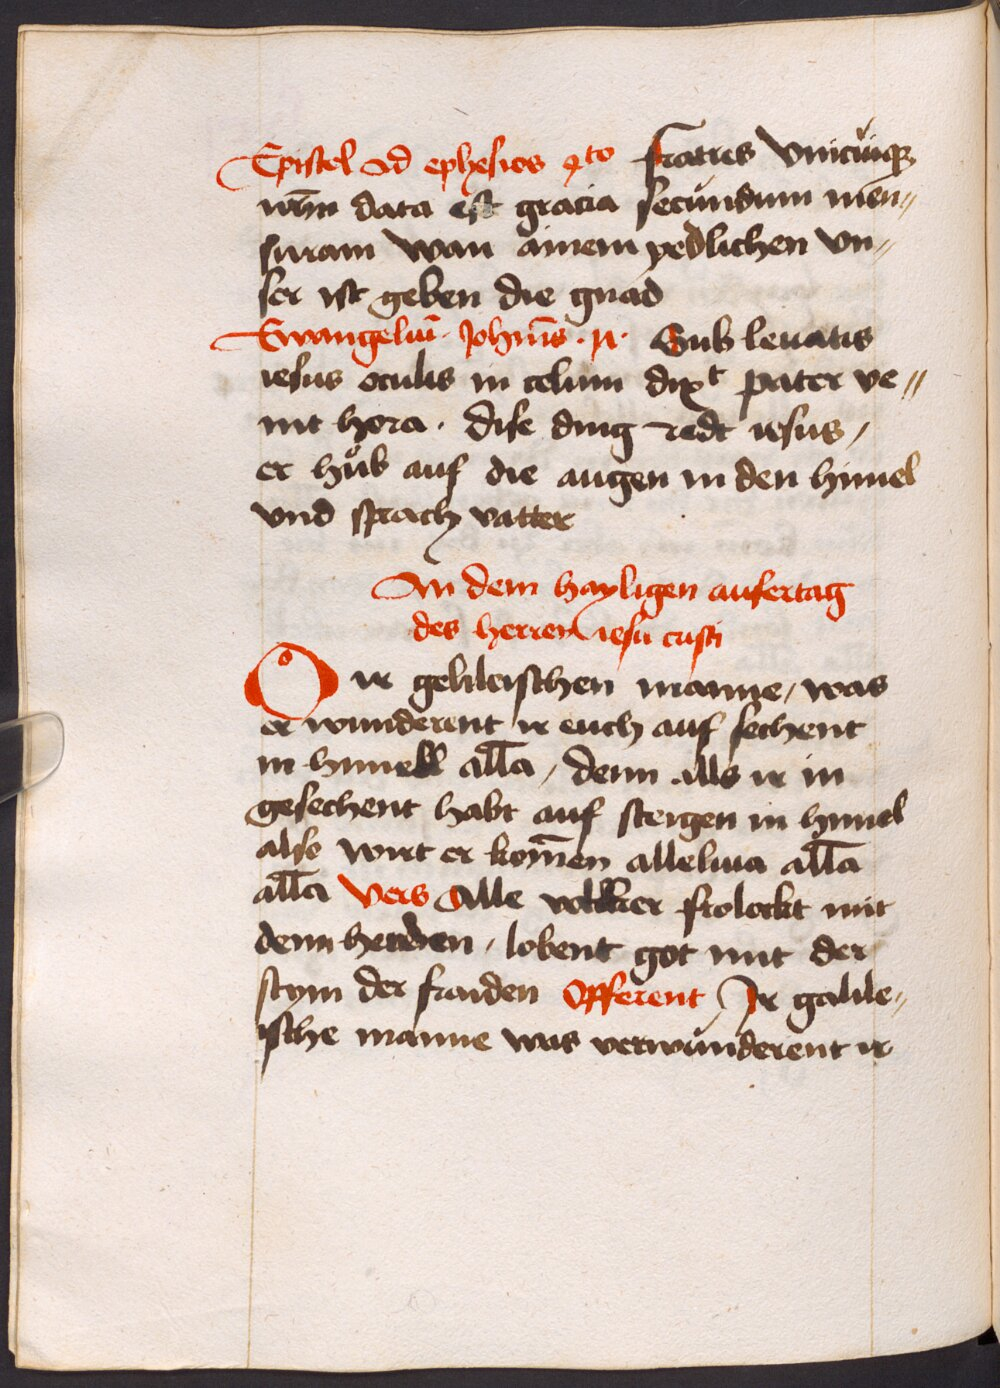 Epistel ad ephesios 4to fratres Vnicuiqꝫ
nr̄m data est gracia secundum men〃
suram wan ainem yedlichen vn〃
ser ist geben die gnad
Ewangeliū · Johānis · Sub leuatis
iesus oculis in celum dixt pater ve〃
nit hora · dise ding redt iesus /
er hůb auf die augen in den himel
vnd sprach vatter
An dem hayligen aufertag
des herren iesu cristi
O ir galileischen manne / was
er wunderent ir euch auf sechent
in himell all̄a / denn alls ir in
gesechent habt auf steigen in himel
also wirt er kom̄en alleluia all̄a
all̄a Vers Alle volkker frolockt mit
denn henden / lobent got mit der
stym der fraiden Offerent Ir galile〃
ische manne was verwunderent ir